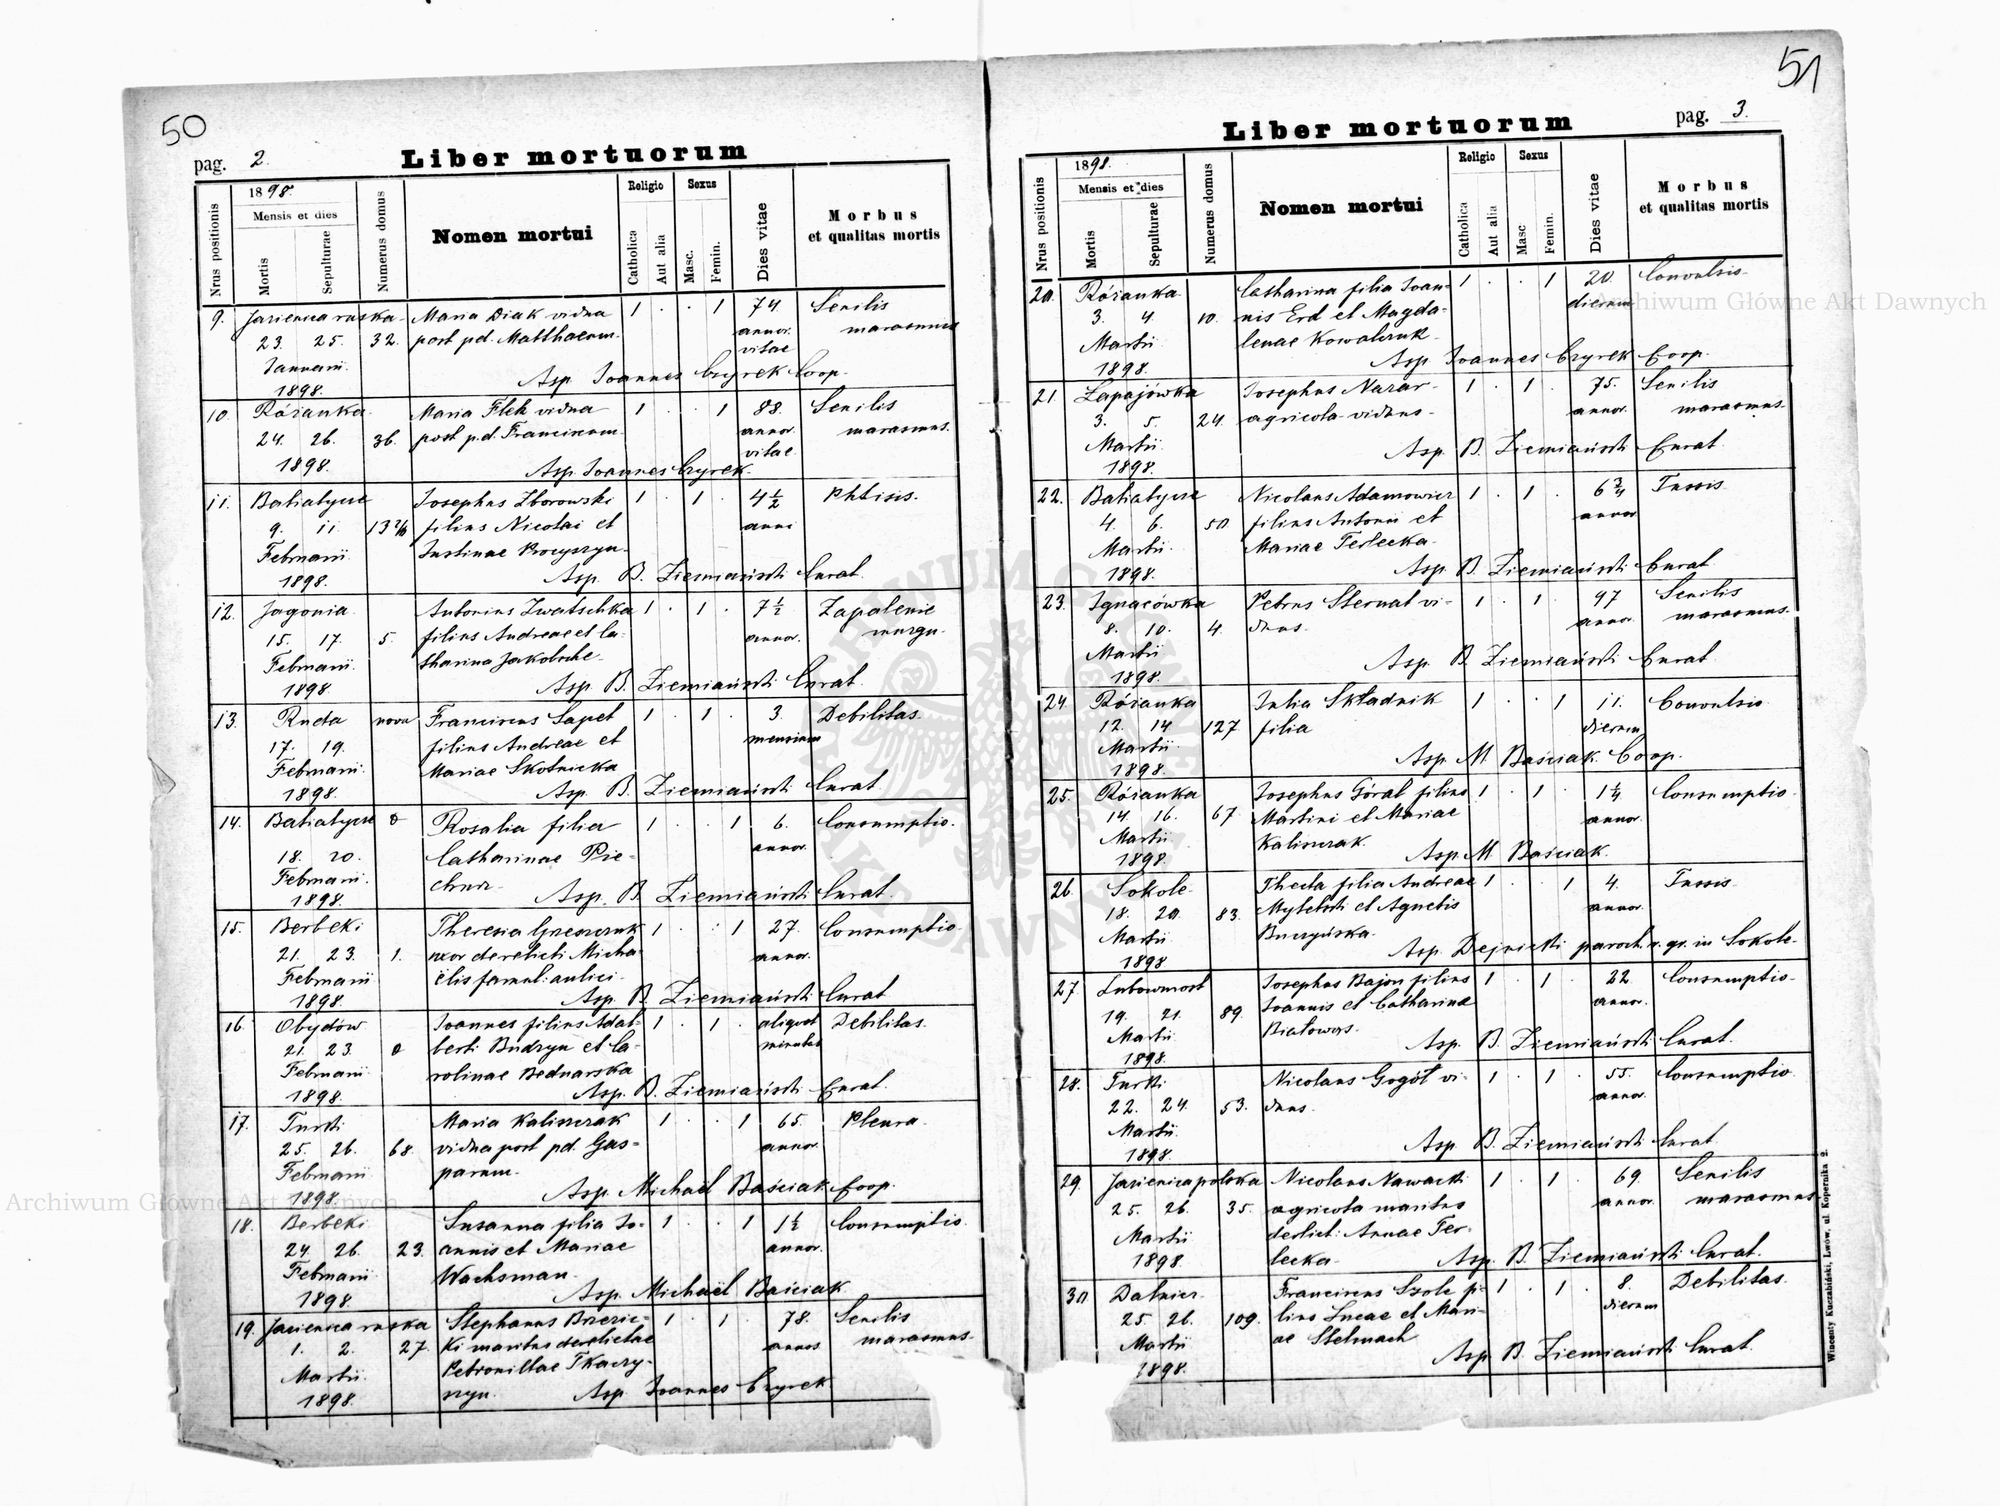 50
pag. 2.
Liber mortuorum
Nrus positionis
1898.
Mensis et dies
Mortis
Sepulturae
Numerus domus
Nomen mortui
Religio
Catholica
Aut alia
Sexus
Masc.
Femin.
Dies vitae
Morbus
et qualitas mortis
9. Jazienica ruska Maria Diak vidua 1 . . 1 74 Senilis
23. 25. 32. post pd. Matthaeum. annor. marasmus
Januarii vitae
1898. Asp. Joannes Czyrek Coop.
10. Różanka Maria Flek vidua 1 . . 1 88. Senilis
24. 26. 36. post p.d. Franciscum annor. marasmus.
1898. vitae
Asp. Joannes Czyrek
11. Batiatycze Josephus Zborowski 1 . 1 . 4 1/2 Phtisis.
9. 11. filius Nicolai et anni
Februarii
1898. Asp. B. Ziemiański Curat.
12. Jagonia Antonius 1 . 1 . 7 1/2 Zapalenie
15. 17. 5. filius Andreae et Ca- annor. muzgu.
Februarii tharina
1898. Asp. B. Ziemiański Curat.
13. Ruda nova Franciscus Sapet 1 . 1 . 3. Debilitas.
17. 19. filius Andreae et mensium
Februarii Mariae Skotnicka
1898. Asp. B. Ziemiański Curat.
14. Batiatycze 0 Rosalia filia 1 . . 1 6. Consumptio.
18. 20. Catharinae Pie- annor.
Februarii
1898. Asp. B. Ziemiański Curat.
15. Berbeki Theresia 1 . . 1 27. Consumptio
21. 23. 1. uxor derelicti Micha annor.
Februarii ëlis famul: aulici
1898. Asp. B. Ziemiański Curat
16. Obydów Joannes filius Adal- 1 . 1 . aliquot Debilitas.
21. 23. 0 berti Budzyn et Ca- minutas
Februarii rolinae Bednarska
1898. Asp. B. Ziemiański Curat.
17. Turki Maria Kaliszczak 1 . . 1 65. Pleura.
25. 26. 68. vidua post pd. Gas- annor.
Februarii parum.
1898. Asp. Michaël Baściak Coop.
18. Berbeki Susanna filia Jo- 1 . . 1 1 1/2 Consumptio.
24. 26. 23. annis et Mariae annor.
Februarii Wachsman.
1898. Asp. Michaël Baściak
19. Jazienica ruska Stephanus Brzezic- 1 . 1 . 78. Senilis
1. 2. 27. ki maritus derelictae annos marasmus.
Martii Petronillae Tkaczy-
1898. szyn. Asp. Joannes Czyrek
51
pag. 3.
Liber mortuorum
Nrus positionis
1898.
Mensis et dies
Mortis
Sepulturae
Numerus domus
Nomen mortui
Religio
Catholica
Aut alia
Sexus
Masc
Femin.
Dies vitae
Morbus
et qualitas mortis
20. Różanka Catharina filia Joan- 1 . . 1 20. Convulsis.
3. 4 10. nis Erd et Magda- dierum
Martii lenae Kowalczuk.
1898. Asp. Joannes Czyrek Coop.
21. Łapajówka Josephus Nazar 1 . 1 . 75. Senilis
3. 5. 24. agricola viduus. annor. marasmus.
Martii
1898. Asp. B. Ziemiański Curat.
22. Batiatycze Nicolaus Adamowicz 1 . 1 . 6 3/4 Tussis.
4. 6. 50. filius Antonii et annor
Martii Mariae Terlecka.
1898. Asp. B. Ziemiański Curat.
23. Ignacówka Petrus Sternat vi- 1 . 1 . 47 Senilis
8. 10. 4. duus. annor. marasmus.
Martii
1898. Asp. B. Ziemiański Curat.
24. Różanka Julia Składnik 1 . . 1 11. Convulsio
12. 14 127 filia dierum
Martii
1898. Asp. M. Baściak Coop.
25. Różanka Josephus Góral filius 1 . 1 . 1 1/4 Consumptio.
14. 16. 67. Martini et Mariae annor.
Martii Kaliszczak.
1898. Asp. M. Baściak.
26. Sokole Thecla filia Andreae 1 . . 1 4. Tussis.
18. 20. 83. et Agnetis annor.
Martii Buczyńska.
1898 Asp. Dejnicki paroch. r. gr. in Sokole.
27 Lubowmost Josephus Bajon filius 1 . 1 . 22 Consumptio.
19. 21. 89. Joannis et Catharina annor.
Martii Białowąs.
1898. Asp. B. Ziemiański Curat.
28. Turki Nicolaus Gogół vi- 1 . 1 . 55. Consumptio
22. 24. 53. duus. annor.
Martii
1898. Asp. B. Ziemiański Curat
29. Jazienica polska Nicolaus Nawacki 1 . 1 . 69. Senilis
25. 26. 35. agricola maritus annor. marasmus
Martii derlict: Annae Ter-
1898. lecka. Asp. B. Ziemiański Curat.
30 Dalnicz Franciscus Szole fi- 1 . 1 . 8. Debilitas.
25. 26. 109. lius Lucae et Mari- dierum
Martii ae Stelmach
1898. Asp. B. Ziemiański Curat.
Wincenty Kuczabiński, Lwów, ul. Kopernika 2.
Archiwum Główne Akt Dawnych
Archiwum Główne Akt Dawnych
ARCHIWUM GŁÓWNE AKT DAWNYCH